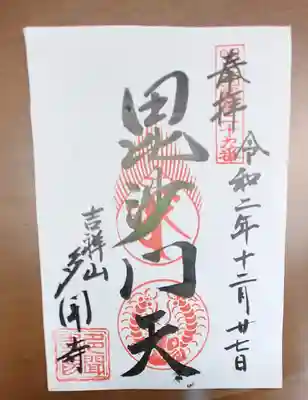 奉拝
令和二年十二月廿七日
毘沙門天
吉祥山
多聞寺